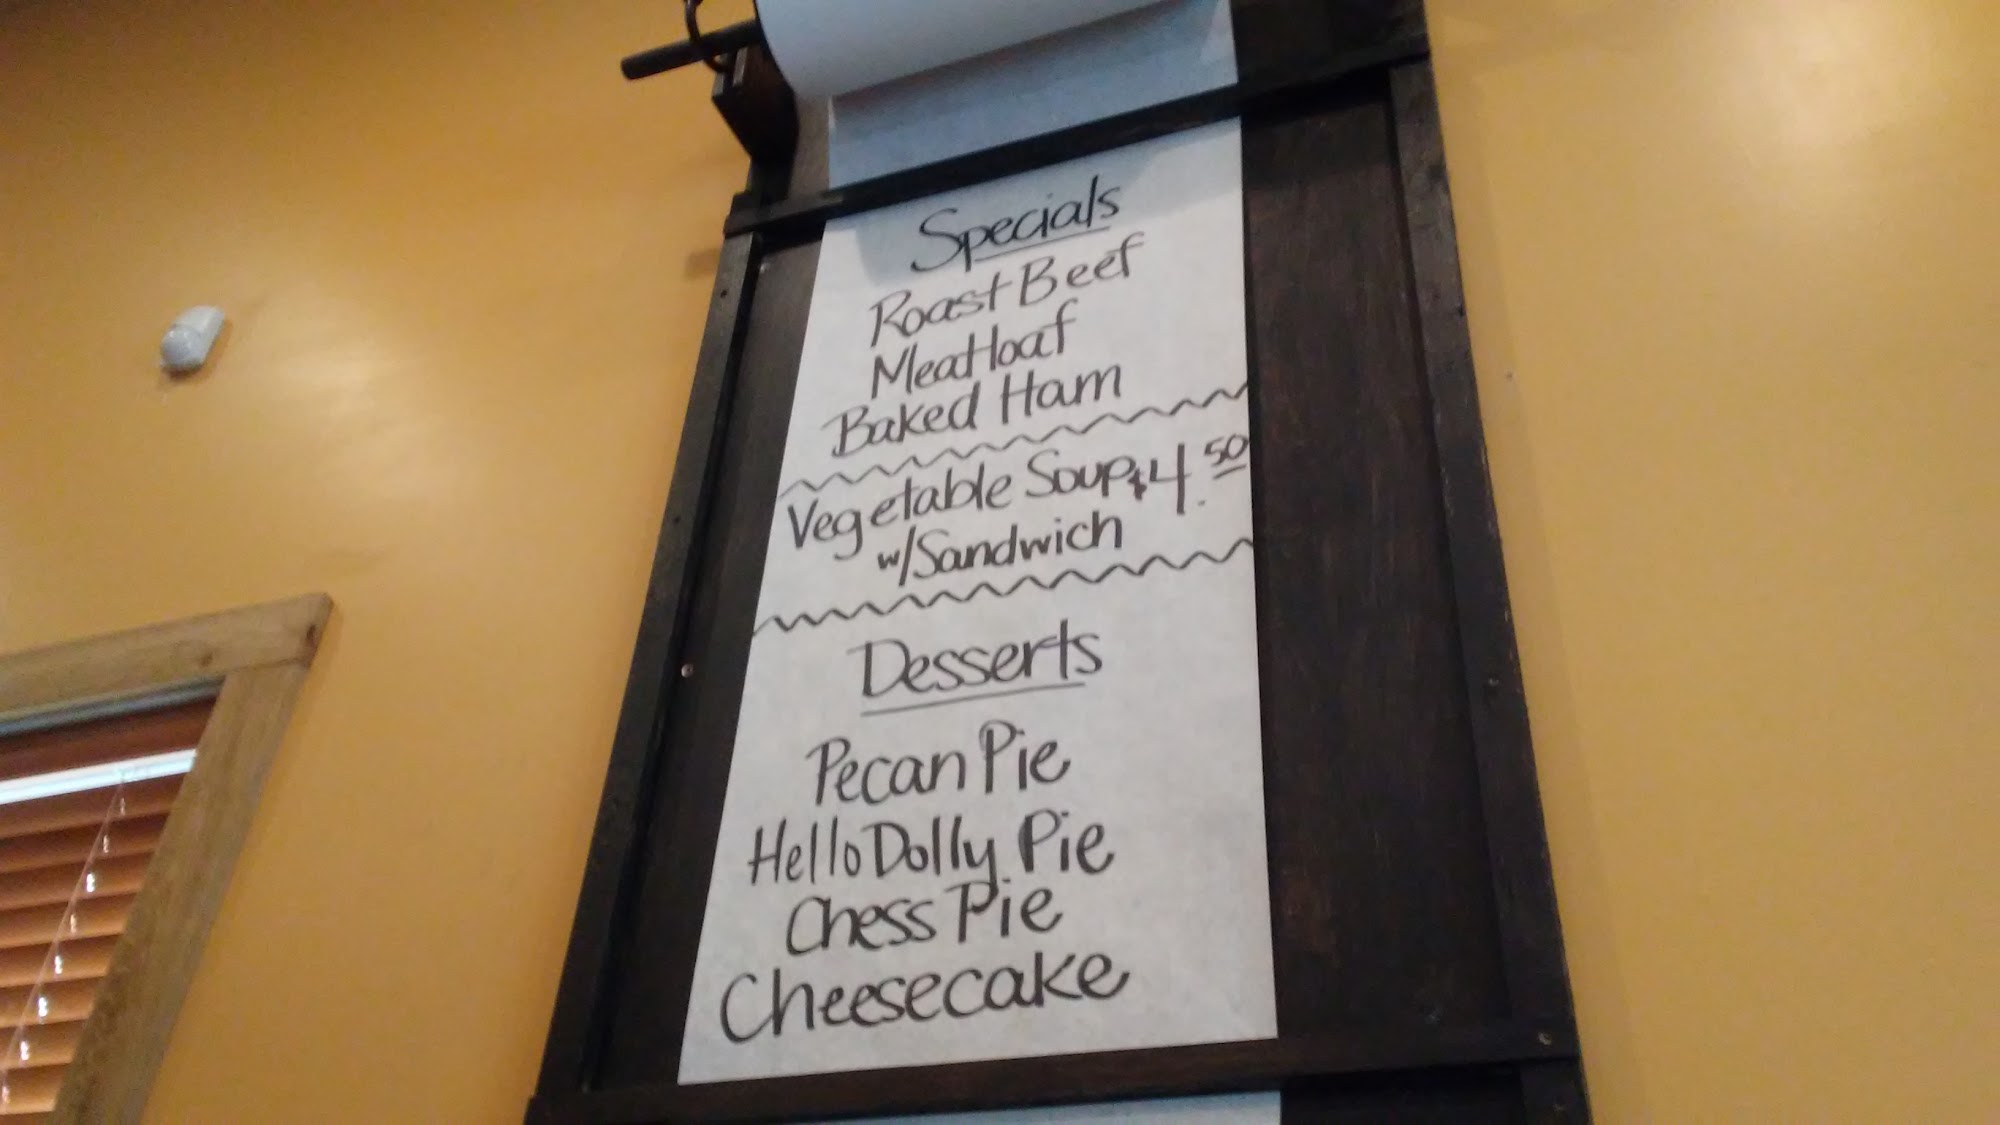 Specials
Roast Beef
Meatloaf
Baked Ham
Vegetable Soup $4.50
w/Sandwich
Desserts
Pecan Pie
Hello Dolly Pie
Chess Pie
Cheesecake